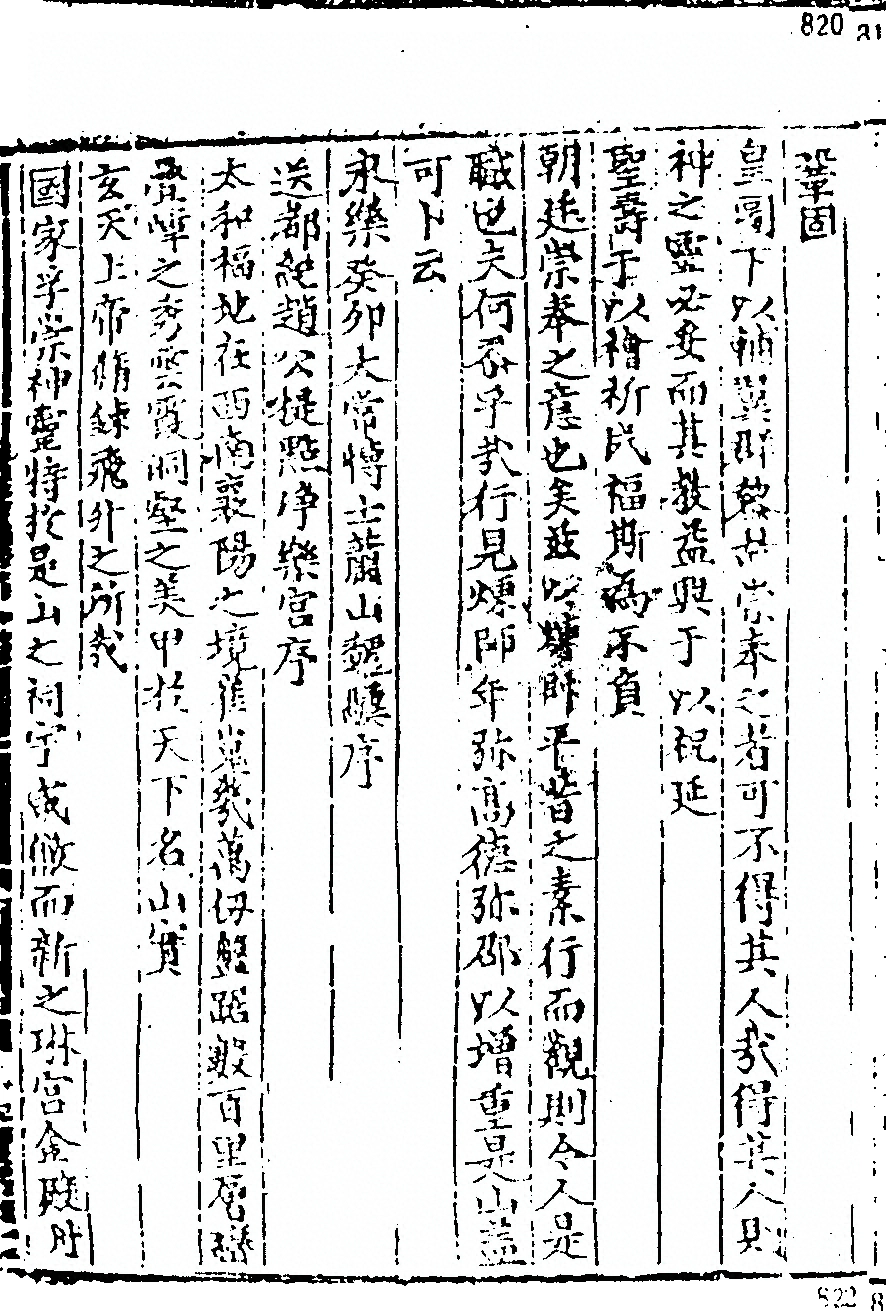 820
鞏固
皇圖下以輔翼群黎其崇奉之者可不得其人哉得其人則
神之靈必安而其教益興于以祝延
聖壽于以禬祈民福斯為不負
朝廷崇奉之意也矣茲以煉師平昔之素行而觀則令人是
職也夫何忝乎哉行見煉師年弥高德弥邵以增重是山蓋
可卜云
永樂癸卯太常博士蕭山魏驥序
送都紀趙公提點淨樂宮序
太和福地在西南襄陽之境崔嵬幾萬仞盤踞數百里層巒
疊嶂之秀雲霞洞壑之美甲於天下名山實
玄天上帝脩鍊飛升之所哉
國家孚崇神靈特於是山之祠宇咸俢而新之琳宮金殿
822